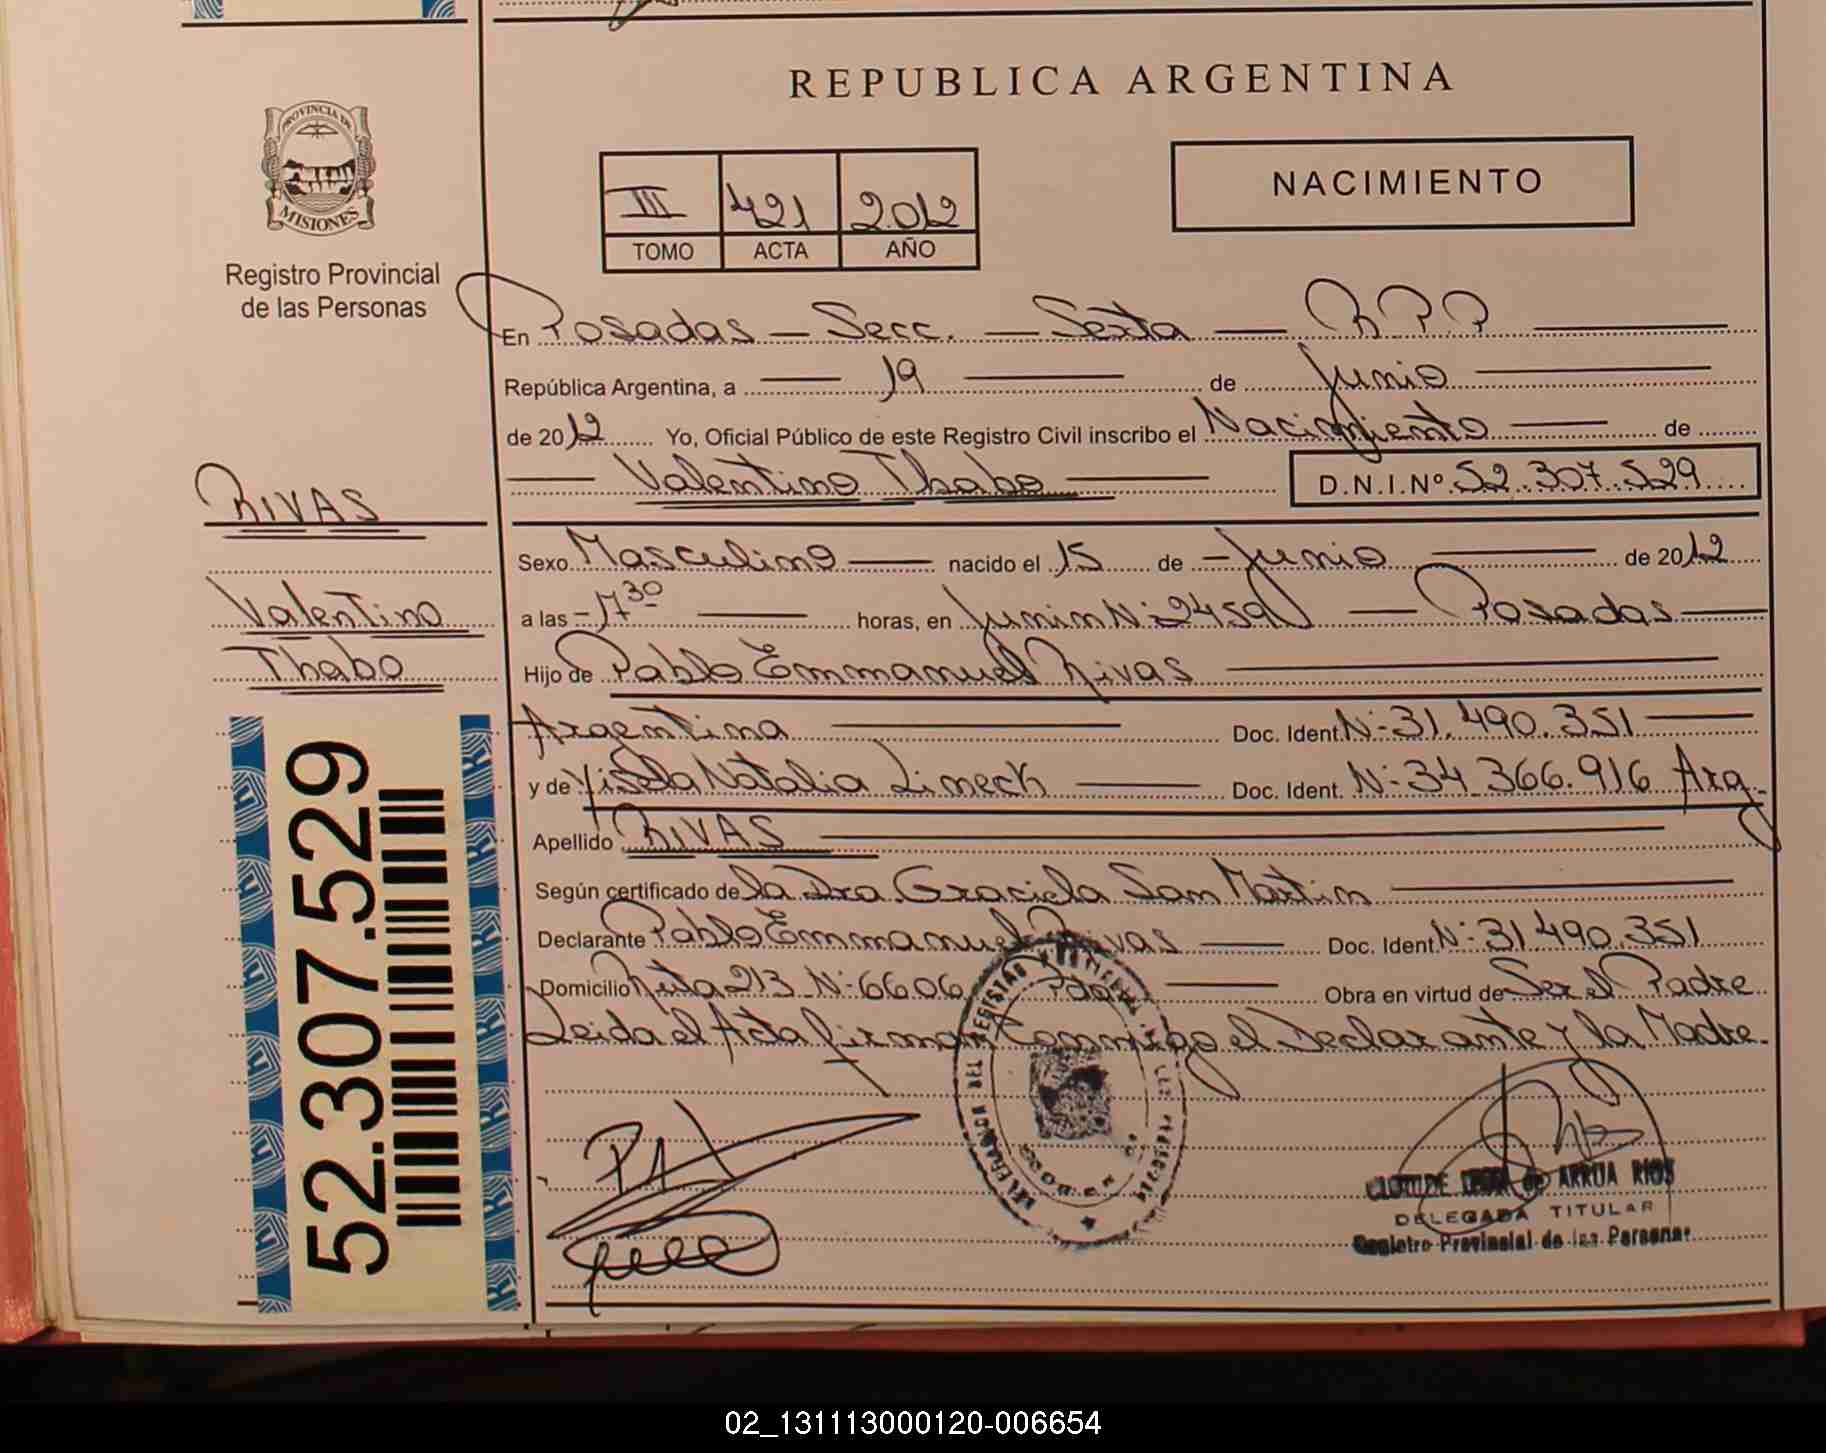 REPUBLICA ARGENTINA
PROVINCIA DE
MISIONES
Registro Provincial
de las Personas
III 421 2.012
TOMO ACTA AÑO
NACIMIENTO
En Posadas - Secc. - Sexta - R P P
República Argentina, a - 19 - de Junio
de 2012 Yo, Oficial Público de este Registro Civil inscribo el Nacimiento - de
- Valentino Thabo - D.N.I.Nº 52.307.529
RIVAS
Valentino
Thabo
Sexo Masculino - nacido el 15 de - Junio - de 2012
a las - 17 30 - horas, en Junin Nº 2459 - Posadas
Hijo de Pablo Emmanuel Rivas
Argentina - Doc. Ident. Nº 31.490.351
y de Yisela Natalia Limeck - Doc. Ident. Nº 34.366.916 Arg.
Apellido RIVAS
Según certificado de la Dra. Graciela San Martin
Declarante Pablo Emmanuel Rivas - Doc. Ident. Nº 31.490.351
Domicilio Ruta 213 Nº 6606 - Obra en virtud de Ser el Padre
Leida el Acta firman Conmigo el Declarante y la Madre.
52.307.529
de ARRUA RIOS
DELEGADA TITULAR
Registro Provincial de las Personas
02_131113000120-006654